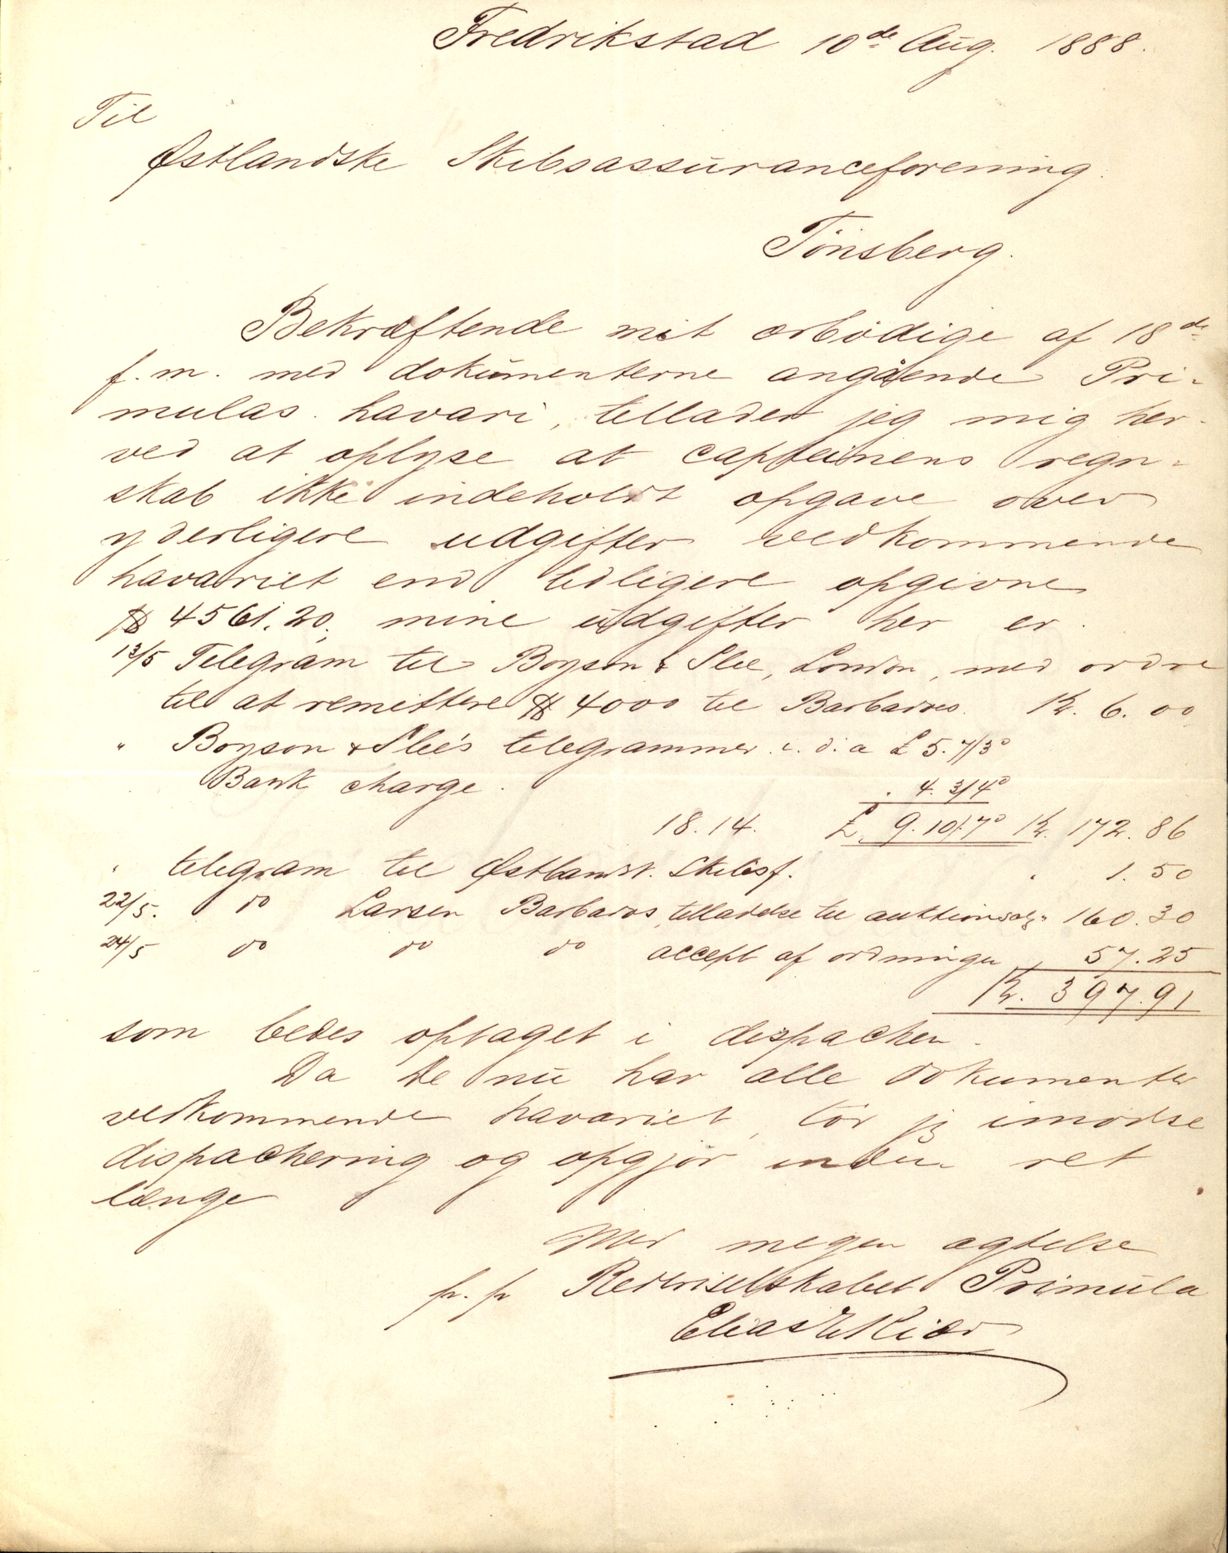 Fredrikstad 10de Aug. 1888.
Til
Østlandske Skibsassuranceforening
Tönsberg.
Bekræftende mit ærbödige af 18de
f. m. med dokumenterne angående Pri-
mulas havari, tillader jeg mig her-
ved at oplyse at capteinens regn-
skab ikke indeholdt opgave over
yderligere udgifter vedkommende
havariet end tidligere opgivne
$ 4561.20, mine udgifter her er.
13/5 Telegram til Boyson & Slee, London, med ordre
til at remittere $ 4000 til Barbados. Kr. 6.00
" Boyson & Slee's telegrammer i. d. a £ 5.7/3d
Bank charge . 4. 3/4d
18.14. £ 9.10/7d Kr. 172.86
" telegram til Østlandsk. Skibsf. " 1.50
22/5. do Larsen Barbados, tilladelse til auktionsalg " 160.30
24/5 do do do accept af ordningen " 57.25
Kr. 397.91
som bedes optaget i despachen.
Da De nu har alle dokumenter
vedkommende havariet, tör jeg imödse
dispachering og opgjör inden ret
længe
Med megen agtelse
p.p Rederiselskabet Primula
Elias Kiær